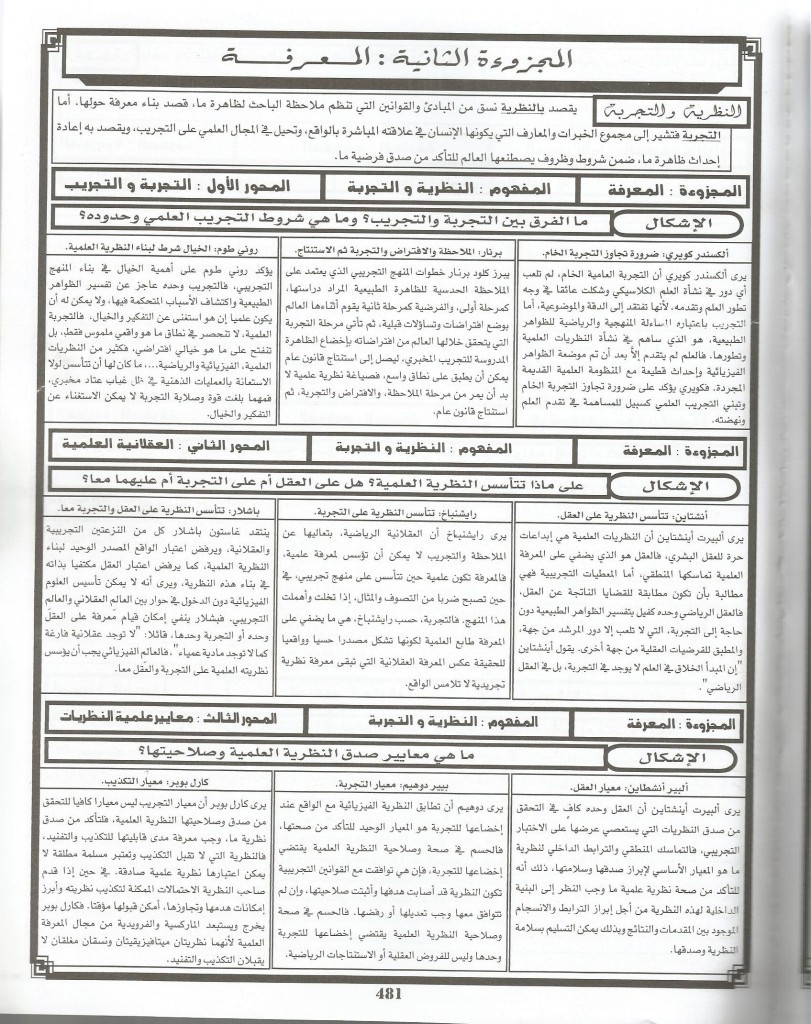 المجزوءة الثانية : المـــعـــرفـــــة
النظرية والتجربة
يقصد بالنظرية نسق من المبادئ والقوانين التي تنظم ملاحظة الباحث لظاهرة ما، قصد بناء معرفة حولها، أما
التجربة فتشير إلى مجموع الخبرات والمعارف التي يكونها الإنسان في علاقته المباشرة بالواقع، وتحيل في المجال العلمي على التجريب، ويقصد به إعادة
إحداث ظاهرة ما، ضمن شروط وظروف يصطنعها العالم للتأكد من صدق فرضية ما.
المجزوءة : المعرفة
المفهوم : النظرية و التجربة
المحور الأول : التجربة و التجريب
الإشكال
ما الفرق بين التجربة والتجريب؟ وما هي شروط التجريب العلمي وحدوده؟
ألكسندر كويري: ضرورة تجاوز التجربة الخام.
يرى ألكسندر كويري أن التجربة العامية الخام، لم تلعب
أي دور في نشأة العلم الكلاسيكي وشكلت عائقا في وجه
تطور العلم وتقدمه، لأنها تفتقد إلى الدقة والموضوعية، أما
التجريب باعتباره المساءلة المنهجية والرياضية للظواهر
الطبيعية، هو الذي ساهم في نشأة النظريات العلمية
وتطورها. فالعلم لم يتقدم إلاّ بعد أن تم موضعة الظواهر
الفيزيائية وإحداث قطيعة مع المنظومة العلمية القديمة
المجردة. فكويري يؤكد على ضرورة تجاوز التجربة الخام
وتبني التجريب العلمي كسبيل للمساهمة في تقدم العلم
ونهضته.
برنار: الملاحظة والافتراض والتجربة ثم الاستنتاج.
يبرز كلود برنار خطوات المنهج التجريبي الذي يعتمد على
الملاحظة الحدسية للظاهرة الطبيعية المراد دراستها،
كمرحلة أولى، والفرضية كمرحلة ثانية يقوم أثناءها العالم
بوضع افتراضات وتساؤلات قبلية، ثم تأتي مرحلة التجربة
التي يتحقق خلالها العالم من افتراضاته بإخضاع الظاهرة
المدروسة للتجريب المخبري، ليصل إلى استنتاج قانون عام
يمكن أن يطبق على نطاق واسع، فصياغة نظرية علمية لا
بد أن يمر من مرحلة الملاحظة، والافتراض والتجربة، ثم
استنتاج قانون عام.
روني طوم: الخيال شرط لبناء النظرية العلمية.
يؤكد روني طوم على أهمية الخيال في بناء المنهج
التجريبي، فالتجريب وحده عاجز عن تفسير الظواهر
الطبيعية واكتشاف الأسباب المتحكمة فيها، ولا يمكن له أن
يكون علميا إن هو استغنى عن التفكير والخيال. فالتجربة
العلمية، لا تنحصر في نطاق ما هو واقعي ملموس فقط، بل
تنفتح على ما هو خيالي افتراضي، فكثير من النظريات
العلمية، الفيزيائية والرياضية....، ما كان لها أن تتأسس لولا
الاستعانة بالعمليات الذهنية في ظل غياب عتاد مخبري.
فمهما بلغت قوة وصلابة التجربة لا يمكن الاستغناء عن
التفكير والخيال.
المجزوءة : المعرفة
المفهوم : النظرية و التجربة
المحور الثاني : العقلانية العلمية
الإشكال
على ماذا تتأسس النظرية العلمية؟ هل على العقل أم على التجربة أم عليهما معا؟
أنشتاين: تتأسس النظرية على العقل.
يرى ألبيرت أينشتاين أن النظريات العلمية هي إبداعات
حرة للعقل البشري، فالعقل هو الذي يضفي على المعرفة
العلمية تماسكها المنطقي، أما المعطيات التجريبية فهي
مطالبة بأن تكون مطابقة للقضايا الناتجة عن العقل.
فالعقل الرياضي وحده كفيل بتفسير الظواهر الطبيعية دون
حاجة إلى التجربة، التي لا تلعب إلا دور المرشد من جهة،
والمطبق للفرضيات العقلية من جهة أخرى. يقول أينشتاين
"إن المبدأ الخلاق في العلم لا يوجد في التجربة، بل في العقل
الرياضي".
رايشنباخ: تتأسس النظرية على التجربة.
يرى رايشنباخ أن العقلانية الرياضية، بتعاليها عن
الملاحظة والتجريب لا يمكن أن تؤسس لمعرفة علمية،
فالمعرفة تكون علمية حين تتأسس على منهج تجريبي، في
حين تصبح ضربا من التصوف والمثال، إذا تخلت وأهملت
هذا المنهج. فالتجربة، حسب رايشنباخ، هي ما يضفي على
المعرفة طابع العلمية لكونها تشكل مصدرا حسيا وواقعيا
للحقيقة عكس المعرفة العقلانية التي تبقى معرفة نظرية
تجريدية لا تلامس الواقع.
باشلار: تتأسس النظرية على العقل والتجربة معا.
ينتقد غاستون باشلار كل من النزعتين التجريبية
والعقلانية، ويرفض اعتبار الواقع المصدر الوحيد لبناء
النظرية العلمية، كما يرفض اعتبار العقل مكتفيا بذاته
في بناء هذه النظرية، ويرى أنه لا يمكن تأسيس العلوم
الفيزيائية دون الدخول في حوار بين العالم العقلاني والعالم
التجريبي. فبشلار ينفي إمكان قيام معرفة على العقل
وحده أو التجربة وحدها، قائلا: "لا توجد عقلانية فارغة
كما لا توجد مادية عمياء"، فالعالم الفيزيائي يجب أن يؤسس
نظريته العلمية على التجربة والعقل معا.
المجزوءة : المعرفة
المفهوم : النظرية و التجربة
المحور الثالث : معايير علمية النظريات
الإشكال
ما هي معايير صدق النظرية العلمية وصلاحيتها؟
ألبير أنشطاين: معيار العقل.
يرى ألبيرت أينشتاين أن العقل وحده كافٍ في التحقق
من صدق النظريات التي يستعصي عرضها على الاختبار
التجريبي، فالتماسك المنطقي والترابط الداخلي لنظرية
ما هو المعيار الأساسي لإبراز صدقها وسلامتها، ذلك أنه
للتأكد من صحة نظرية علمية ما وجب النظر إلى البنية
الداخلية لهذه النظرية من أجل إبراز الترابط والانسجام
الموجود بين المقدمات والنتائج وبذلك يمكن التسليم بسلامة
النظرية وصدقها.
بيير دوهيم: معيار التجربة.
يرى دوهيم أن تطابق النظرية الفيزيائية مع الواقع عند
إخضاعها للتجربة هو المعيار الوحيد للتأكد من صحتها،
فالحسم في صحة وصلاحية النظرية العلمية يقتضي
إخضاعها للتجربة، فإن هي توافقت مع القوانين التجريبية
تكون النظرية قد أصابت هدفها وأثبتت صلاحيتها، وإن لم
تتوافق معها وجب تعديلها أو رفضها. فالحسم في صحة
وصلاحية النظرية العلمية يقتضي إخضاعها للتجربة
وحدها وليس للفروض العقلية أو الاستنتاجات الرياضية.
كارل بوبر: معيار التكذيب.
يرى كارل بوبر أن معيار التجريب ليس معيارا كافيا للتحقق
من صدق وصلاحيتها النظرية العلمية، فللتأكد من صدق
نظرية ما، وجب معرفة مدى قابليتها للتكذيب والتفنيد،
فالنظرية التي لا تقبل التكذيب وتعتبر مسلمة مطلقة لا
يمكن اعتبارها نظرية علمية صادقة. في حين إذا قدم
صاحب النظرية الاحتمالات الممكنة لتكذيب نظريته وأبرز
إمكانات هدمها وتجاوزها، أمكن قبولها مؤقتا. فكارل بوبر
يخرج ويستبعد الماركسية والفرويدية من مجال المعرفة
العلمية لأنهما نظريتان ميتافيزيقيتان ونسقان مغلقان لا
يقبلان التكذيب والتفنيد.
481